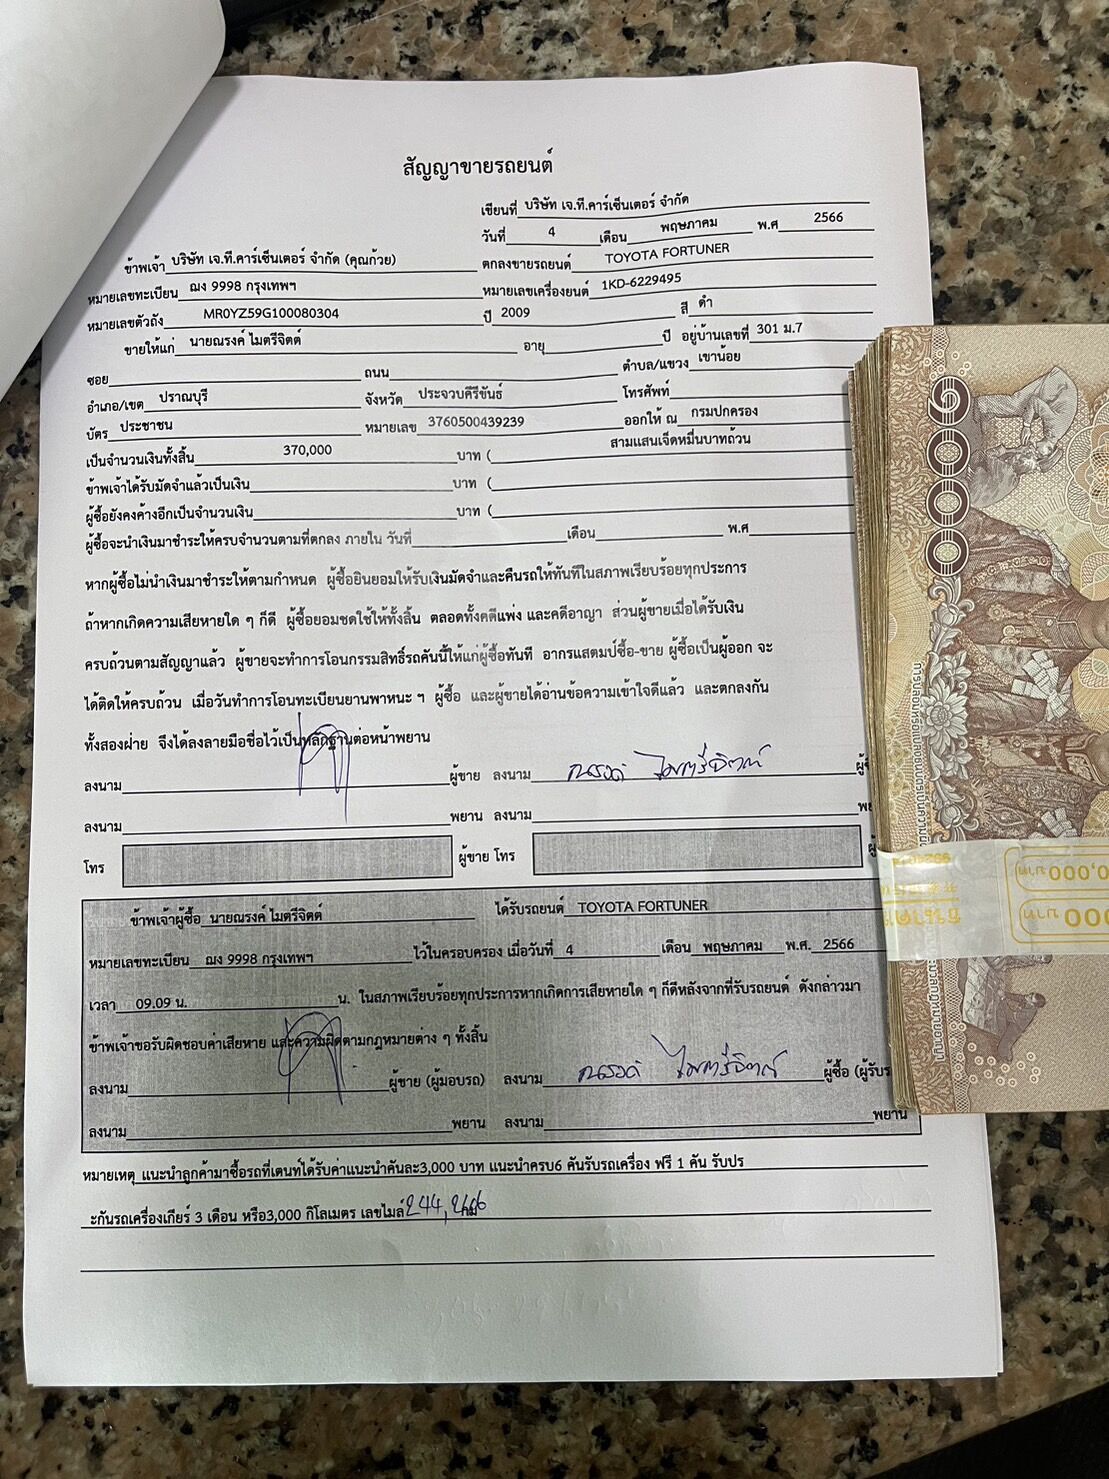 สัญญาขายรถยนต์
เขียนที่ บริษัท เจ.ที.คาร์เซ็นเตอร์ จำกัด
วันที่ 4 เดือน พฤษภาคม พ.ศ 2566
ข้าพเจ้า บริษัท เจ.ที.คาร์เซ็นเตอร์ จำกัด (คุณก้วย) ตกลงขายรถยนต์ TOYOTA FORTUNER
หมายเลขทะเบียน ฌง 9998 กรุงเทพฯ หมายเลขเครื่องยนต์ 1KD-6229495
หมายเลขตัวถัง MR0YZ59G100080304 ปี 2009 สี ดำ
ขายให้แก่ นายณรงค์ ไมตรีจิตต์ อายุ ปี อยู่บ้านเลขที่ 301 ม.7
ซอย ถนน ตำบล/แขวง เขาน้อย
อำเภอ/เขต ปราณบุรี จังหวัด ประจวบคีรีขันธ์ โทรศัพท์
บัตร ประชาชน หมายเลข 3760500439239 ออกให้ ณ กรมปกครอง
เป็นจำนวนเงินทั้งสิ้น 370,000 บาท ( สามแสนเจ็ดหมื่นบาทถ้วน
ข้าพเจ้าได้รับมัดจำแล้วเป็นเงิน บาท (
ผู้ซื้อยังคงค้างอีกเป็นจำนวนเงิน บาท (
ผู้ซื้อจะนำเงินมาชำระให้ครบจำนวนตามที่ตกลง ภายใน วันที่ เดือน พ.ศ
หากผู้ซื้อไม่นำเงินมาชำระให้ตามกำหนด ผู้ซื้อยินยอมให้รับเงินมัดจำและคืนรถให้ทันทีในสภาพเรียบร้อยทุกประการ
ถ้าหากเกิดความเสียหายใด ๆ ก็ดี ผู้ซื้อยอมชดใช้ให้ทั้งสิ้น ตลอดทั้งคดีแพ่ง และคดีอาญา ส่วนผู้ขายเมื่อได้รับเงิน
ครบถ้วนตามสัญญาแล้ว ผู้ขายจะทำการโอนกรรมสิทธิ์รถคันนี้ให้แก่ผู้ซื้อทันที อากรแสตมป์ซื้อ-ขาย ผู้ซื้อเป็นผู้ออก จะ
ได้ติดให้ครบถ้วน เมื่อวันทำการโอนทะเบียนยานพาหนะ ฯ ผู้ซื้อ และผู้ขายได้อ่านข้อความเข้าใจดีแล้ว และตกลงกัน
ทั้งสองฝ่าย จึงได้ลงลายมือชื่อไว้เป็นหลักฐานต่อหน้าพยาน
ลงนาม ผู้ขาย ลงนาม ณรงค์ ไมตรีจิตต์
ลงนาม พยาน ลงนาม
โทร ผู้ขาย โทร
ข้าพเจ้าผู้ซื้อ นายณรงค์ ไมตรีจิตต์ ได้รับรถยนต์ TOYOTA FORTUNER
หมายเลขทะเบียน ฌง 9998 กรุงเทพฯ ไว้ในครอบครอง เมื่อวันที่ 4 เดือน พฤษภาคม พ.ศ. 2566
เวลา 09.09 น. น. ในสภาพเรียบร้อยทุกประการหากเกิดการเสียหายใด ๆ ก็ดีหลังจากที่รับรถยนต์ ดังกล่าวมา
ข้าพเจ้าขอรับผิดชอบค่าเสียหาย และความผิดตามกฎหมายต่าง ๆ ทั้งสิ้น
ลงนาม ผู้ขาย (ผู้มอบรถ) ลงนาม ณรงค์ ไมตรีจิตต์ ผู้ซื้อ (ผู้รับร
ลงนาม พยาน ลงนาม พยาน
หมายเหตุ แนะนำลูกค้ามาซื้อรถที่เตนท์ได้รับค่าแนะนำคันละ3,000 บาท แนะนำครบ6 คันรับรถเครื่อง ฟรี 1 คัน รับปร
ะกันรถเครื่องเกียร์ 3 เดือน หรือ3,000 กิโลเมตร เลขไมล์ 244,
๑๐๐๐